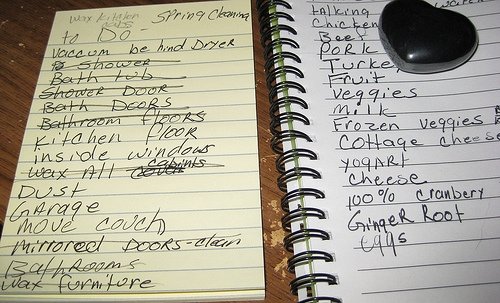 wax kitchen
Spring Cleaning
To Do
Vaccum behind Dryer
Shower
Bath tub
Shower Door
Bath Doors
Bathroom floors
Kitchen floor
inside windows
wax All cabints
Dust
GArage
move couch
Mirrored Doors-clean
Bathrooms
wax furniture
talking
Chicken
Beef
Pork
Turkey
Fruit
Veggies
Milk
Frozen veggies
Cottage cheese
yogart
cheese
100% cranbery
Ginger Root
eggs